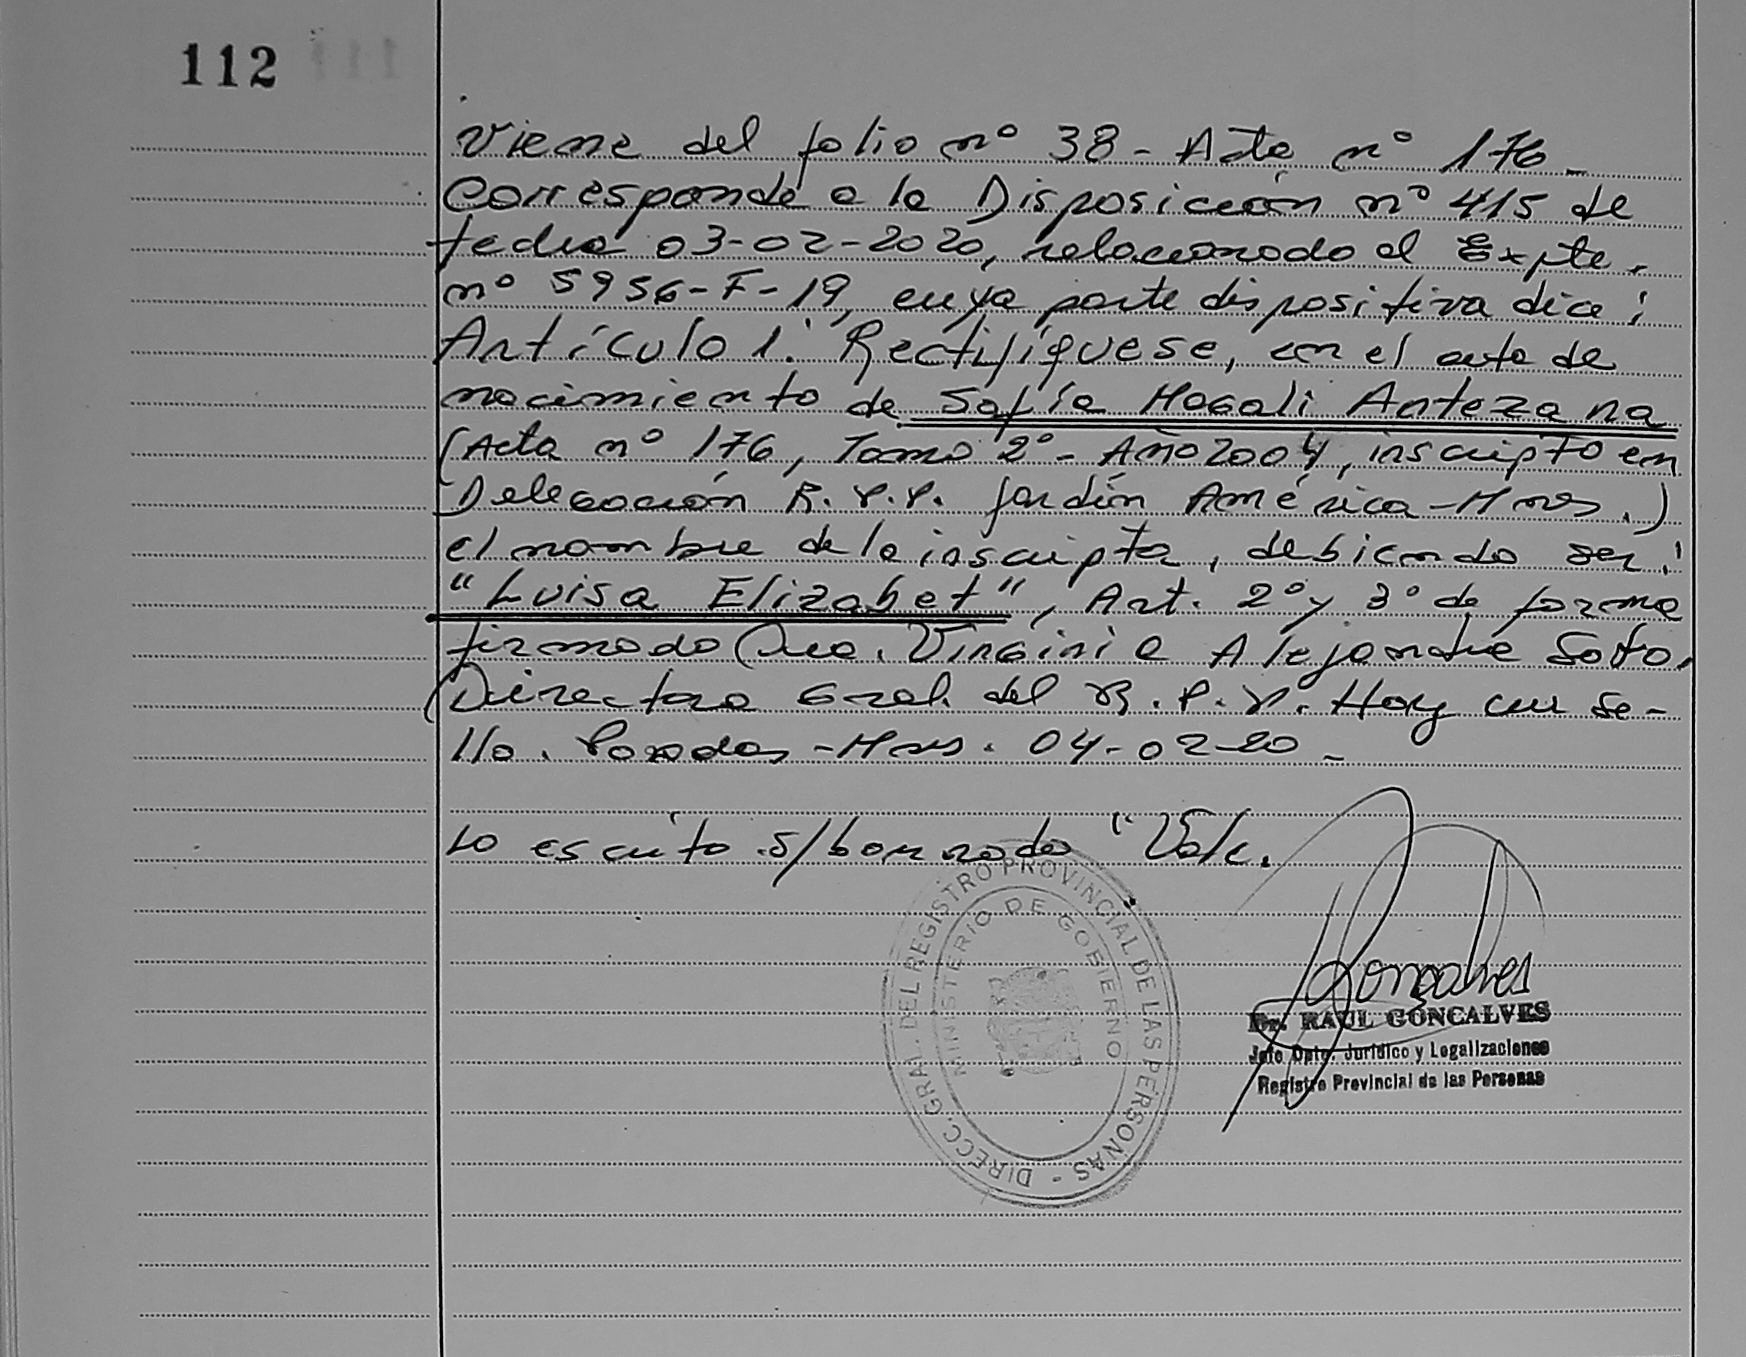 112
Viene del folio nº 38 - Acta nº 176 -
Corresponde a la Disposición nº 415 de
fecha 03-02-2020, relacionado al Expte.
nº 5956-F-19, cuya parte dispositiva dice:
Artículo 1: Rectifíquese, en el acta de
nacimiento de Sofía Magali Antezana
(Acta nº 176, Tomo 2º - Año 2004, inscripto en
Delegación R.P.P. Jardín América - Mnes.)
el nombre de la inscripta, debiendo ser:
"Luisa Elizabet", Art. 2º y 3º de forma
firmado Virginia Alejandra Soto,
Directora Gral. del R.P.P. Hay un se-
llo. Posadas - Mnes. 04-02-20 -
Lo escrito s/borrado " Vale.
DIRECC. GRAL. DEL REGISTRO PROVINCIAL DE LAS PERSONAS -
MINISTERIO DE GOBIERNO
Goncalves
Dr. RAUL GONCALVES
Jefe Dpto. Jurídico y Legalizaciones
Registro Provincial de las Personas